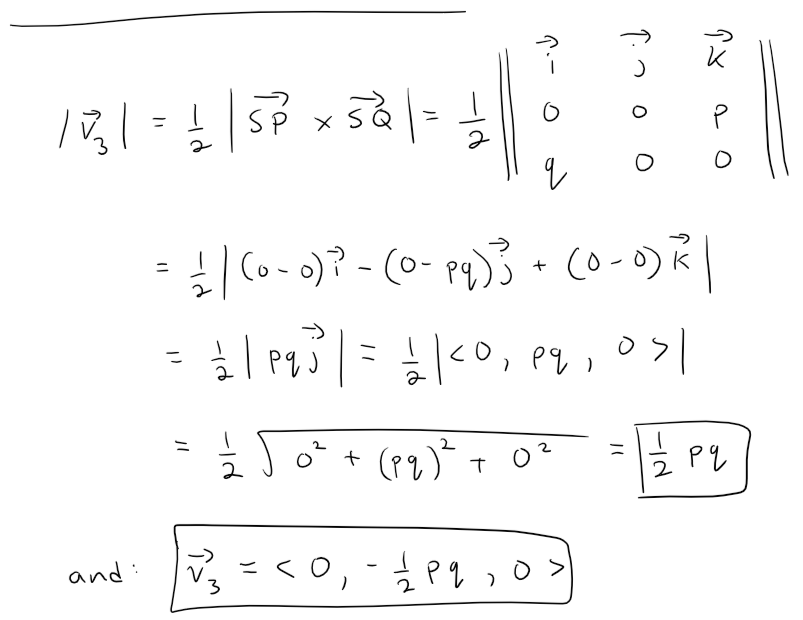 |v⃗₃| = 1/2 |SP⃗ × SQ⃗| = 1/2 || i⃗ j⃗ k⃗
0 0 p
q 0 0 ||
= 1/2 |(0-0)i⃗ - (0-pq)j⃗ + (0-0)k⃗|
= 1/2 |pqj⃗| = 1/2 |<0, pq, 0>|
= 1/2 √(0² + (pq)² + 0²) = 1/2 pq
and: v⃗₃ = <0, -1/2 pq, 0>